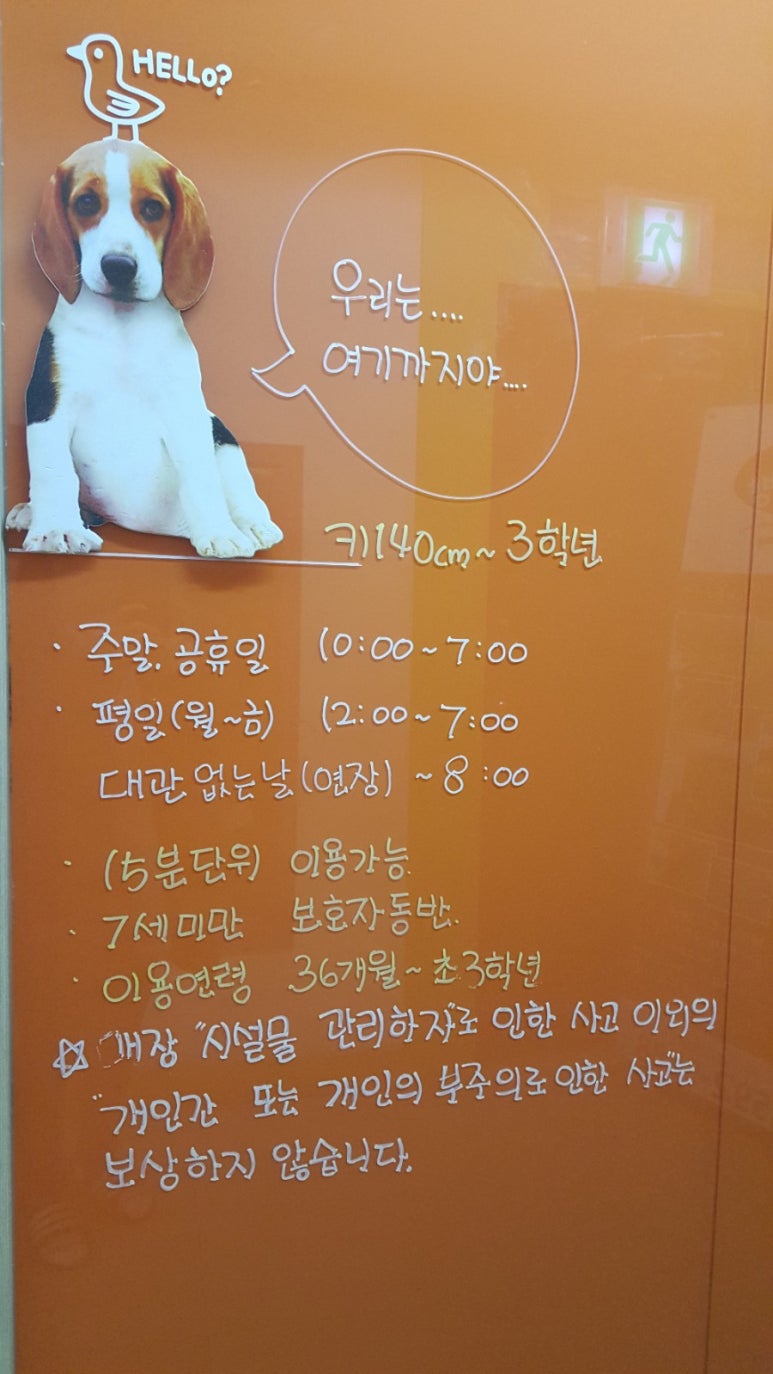 HELLO?
우리는....
여기까지야....
키140cm~3학년
· 주말.공휴일 10:00~7:00
· 평일(월~금) 12:00~7:00
대관 없는날(연장) ~8:00
· 15분단위) 이용가능
· 7세미만 보호자동반.
· 이용연령 36개월~초3학년
☆ 매장 "시설물 관리하자"로 인한 사고 이외의
"개인간 또는 개인의 부주의로 인한 사고"는
보상하지 않습니다.